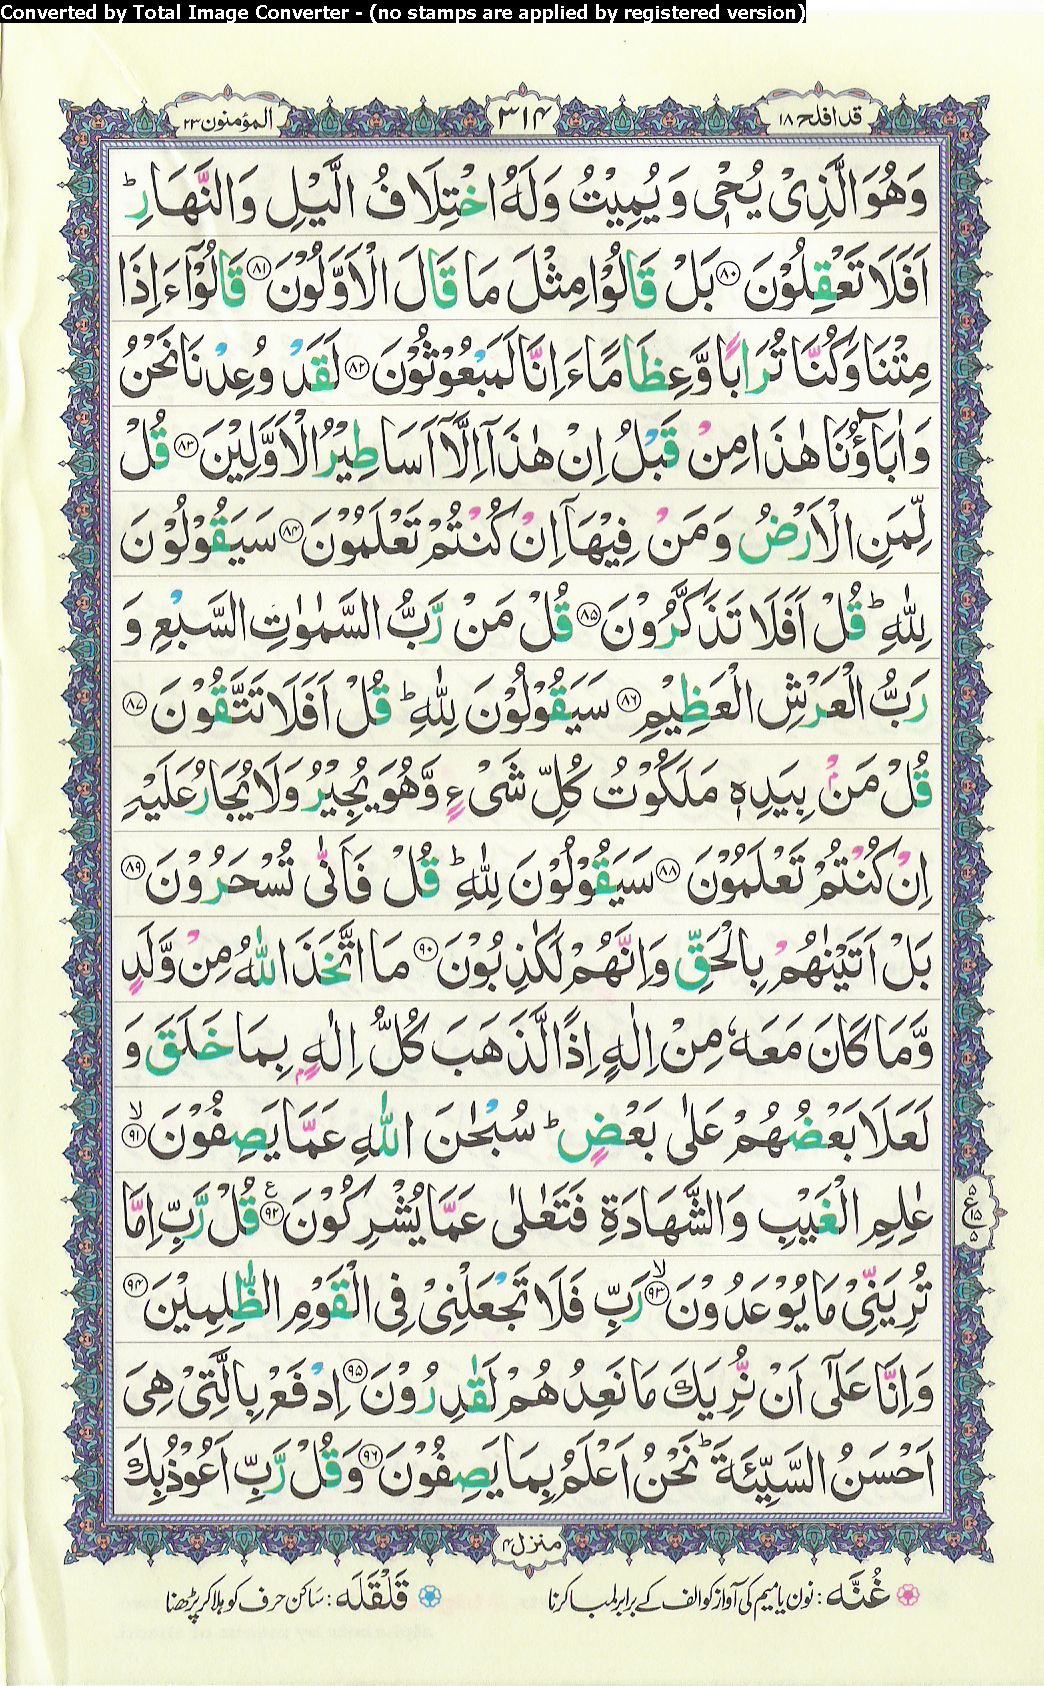 Converted by Total Image Converter - (no stamps are applied by registered version)
قد افلح ١٨
٣١۴
المؤمنون ٢٣
وَهُوَ الَّذِىْ يُحْىٖ وَيُمِيْتُ وَلَهُ اخْتِلَافُ الَّيْلِ وَالنَّهَارِ ؕ
اَفَلَا تَعْقِلُوْنَ ﴿٨٠﴾ بَلْ قَالُوْا مِثْلَ مَا قَالَ الْاَوَّلُوْنَ ﴿٨١﴾ قَالُوْٓا ءَاِذَا
مِتْنَا وَكُنَّا تُرَابًا وَّعِظَامًا ءَاِنَّا لَمَبْعُوْثُوْنَ ﴿٨٢﴾ لَقَدْ وُعِدْنَا نَحْنُ
وَاٰبَآؤُنَا هٰذَا مِنْ قَبْلُ اِنْ هٰذَآ اِلَّآ اَسَاطِيْرُ الْاَوَّلِيْنَ ﴿٨٣﴾ قُلْ
لِّمَنِ الْاَرْضُ وَمَنْ فِيْهَآ اِنْ كُنْتُمْ تَعْلَمُوْنَ ﴿٨٤﴾ سَيَقُوْلُوْنَ
لِلّٰهِ ؕ قُلْ اَفَلَا تَذَكَّرُوْنَ ﴿٨٥﴾ قُلْ مَنْ رَّبُّ السَّمٰوٰتِ السَّبْعِ وَ
رَبُّ الْعَرْشِ الْعَظِيْمِ ﴿٨٦﴾ سَيَقُوْلُوْنَ لِلّٰهِ ؕ قُلْ اَفَلَا تَتَّقُوْنَ ﴿٨٧﴾
قُلْ مَنْۢ بِيَدِهٖ مَلَكُوْتُ كُلِّ شَىْءٍ وَّهُوَ يُجِيْرُ وَلَا يُجَارُ عَلَيْهِ
اِنْ كُنْتُمْ تَعْلَمُوْنَ ﴿٨٨﴾ سَيَقُوْلُوْنَ لِلّٰهِ ؕ قُلْ فَاَنّٰى تُسْحَرُوْنَ ﴿٨٩﴾
بَلْ اَتَيْنٰهُمْ بِالْحَقِّ وَاِنَّهُمْ لَكٰذِبُوْنَ ﴿٩٠﴾ مَا اتَّخَذَ اللّٰهُ مِنْ وَّلَدٍ
وَّمَا كَانَ مَعَهٗ مِنْ اِلٰهٍ اِذًا لَّذَهَبَ كُلُّ اِلٰهٍۢ بِمَا خَلَقَ وَ
لَعَلَا بَعْضُهُمْ عَلٰى بَعْضٍ ؕ سُبْحٰنَ اللّٰهِ عَمَّا يَصِفُوْنَ ۙ﴿٩١﴾
عٰلِمِ الْغَيْبِ وَالشَّهَادَةِ فَتَعٰلٰى عَمَّا يُشْرِكُوْنَ ﴿٩٢﴾ ع قُلْ رَّبِّ اِمَّا
٥ ع ١٥ ٥
تُرِيَنِّىْ مَا يُوْعَدُوْنَ ۙ﴿٩٣﴾ رَبِّ فَلَا تَجْعَلْنِىْ فِى الْقَوْمِ الظّٰلِمِيْنَ ﴿٩٤﴾
وَاِنَّا عَلٰٓى اَنْ نُّرِيَكَ مَا نَعِدُهُمْ لَقٰدِرُوْنَ ﴿٩٥﴾ اِدْفَعْ بِالَّتِىْ هِىَ
اَحْسَنُ السَّيِّئَةَ ؕ نَحْنُ اَعْلَمُ بِمَا يَصِفُوْنَ ﴿٩٦﴾ وَقُلْ رَّبِّ اَعُوْذُ بِكَ
منزل ۴
غُنَّه: نون یا میم کی آواز کو الف کے برابر لمبا کرنا
قَلْقَلَه: ساکن حرف کو ہلا کر پڑھنا